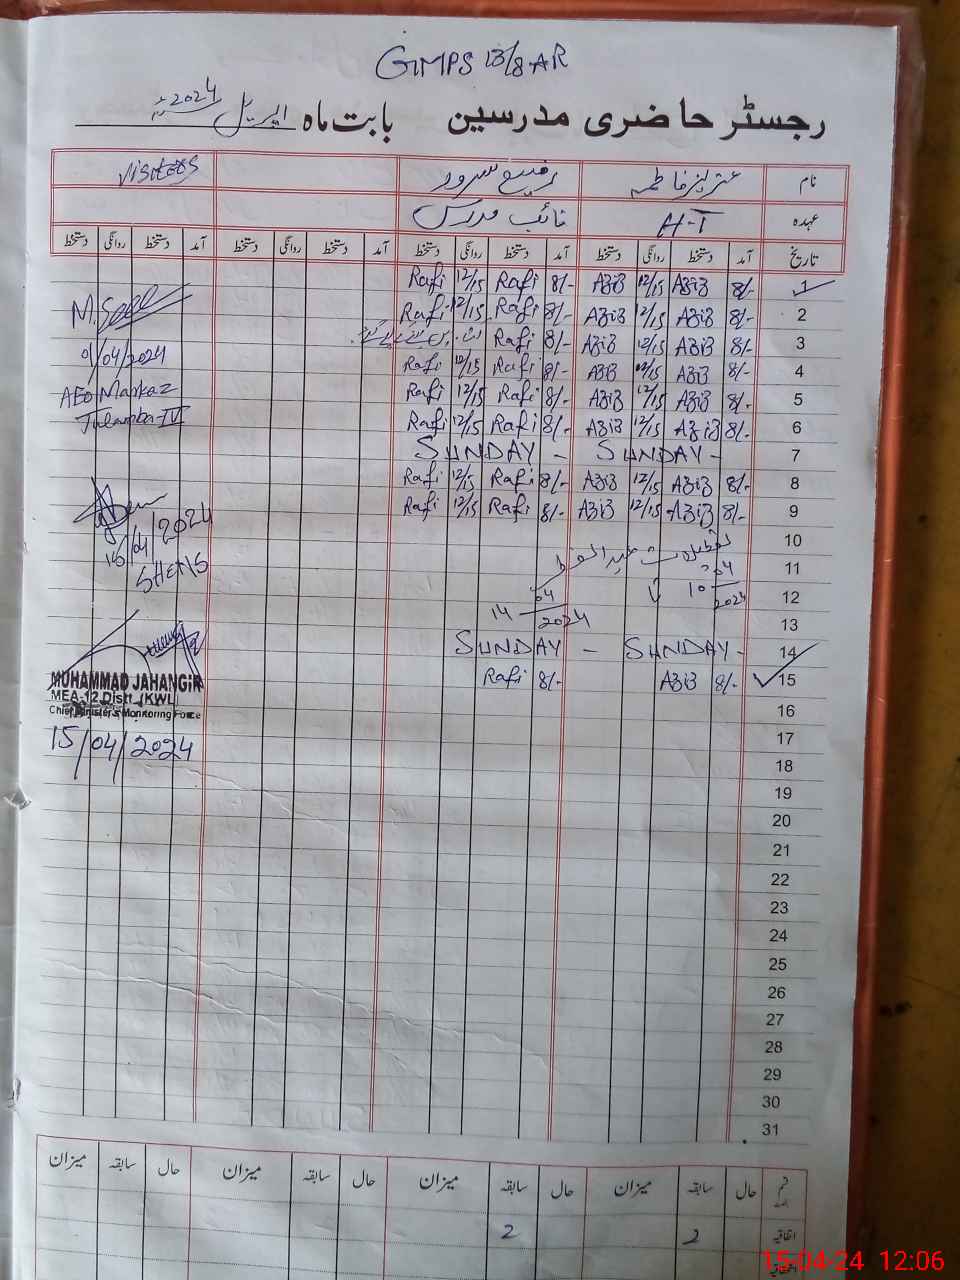 GMPS 13/8-AR
رجسٹر حاضری مدرسین بابت ماہ اپریل 2024
نام عزیز فاطمہ رفیع سرور visitors
عہدہ H-T نائب مدرس
تاریخ آمد دستخط روانگی دستخط آمد دستخط روانگی دستخط آمد دستخط روانگی دستخط آمد دستخط روانگی دستخط
1 8/- AZiZ 12/15 AZiZ 8/- Rafi 12/15 Rafi
2 8/- AZiZ 12/15 AZiZ 8/- Rafi 12/15 Rafi
3 8/- AZiZ 12/15 AZiZ 8/- Rafi
4 8/- AZiZ 12/15 AZiZ 8/- Rafi 12/15 Rafi
5 8/- AZiZ 12/15 AZiZ 8/- Rafi 12/15 Rafi
6 8/- AZiZ 12/15 AZiZ 8/- Rafi 12/15 Rafi
7 SUNDAY - SUNDAY -
8 8/- AZiZ 12/15 AZiZ 8/- Rafi 12/15 Rafi
9 8/- AZiZ 12/15 AZiZ 8/- Rafi 12/15 Rafi
10
11 تعطیلات عید الفطر
12 10 04 2024 تا 14 04 2024
13
14 SUNDAY - SUNDAY -
15 8/- AZiZ 8/- Rafi
16
17
18
19
20
21
22
23
24
25
26
27
28
29
30
31
M. Saeed
01/04/2024
AEO Markaz
Tulamba-IV
15/04/2024
MUHAMMAD JAHANGIR
MEA-12 Distt. (KWL)
Chief Minister's Monitoring Force
15/04/2024
حال سابقہ میزان حال سابقہ میزان حال سابقہ میزان حال سابقہ میزان
اتفاقیہ 2 2
15-04-24 12:06